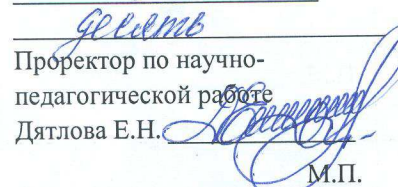 десять
Проректор по научно-
педагогической работе
Дятлова Е.Н.
М.П.